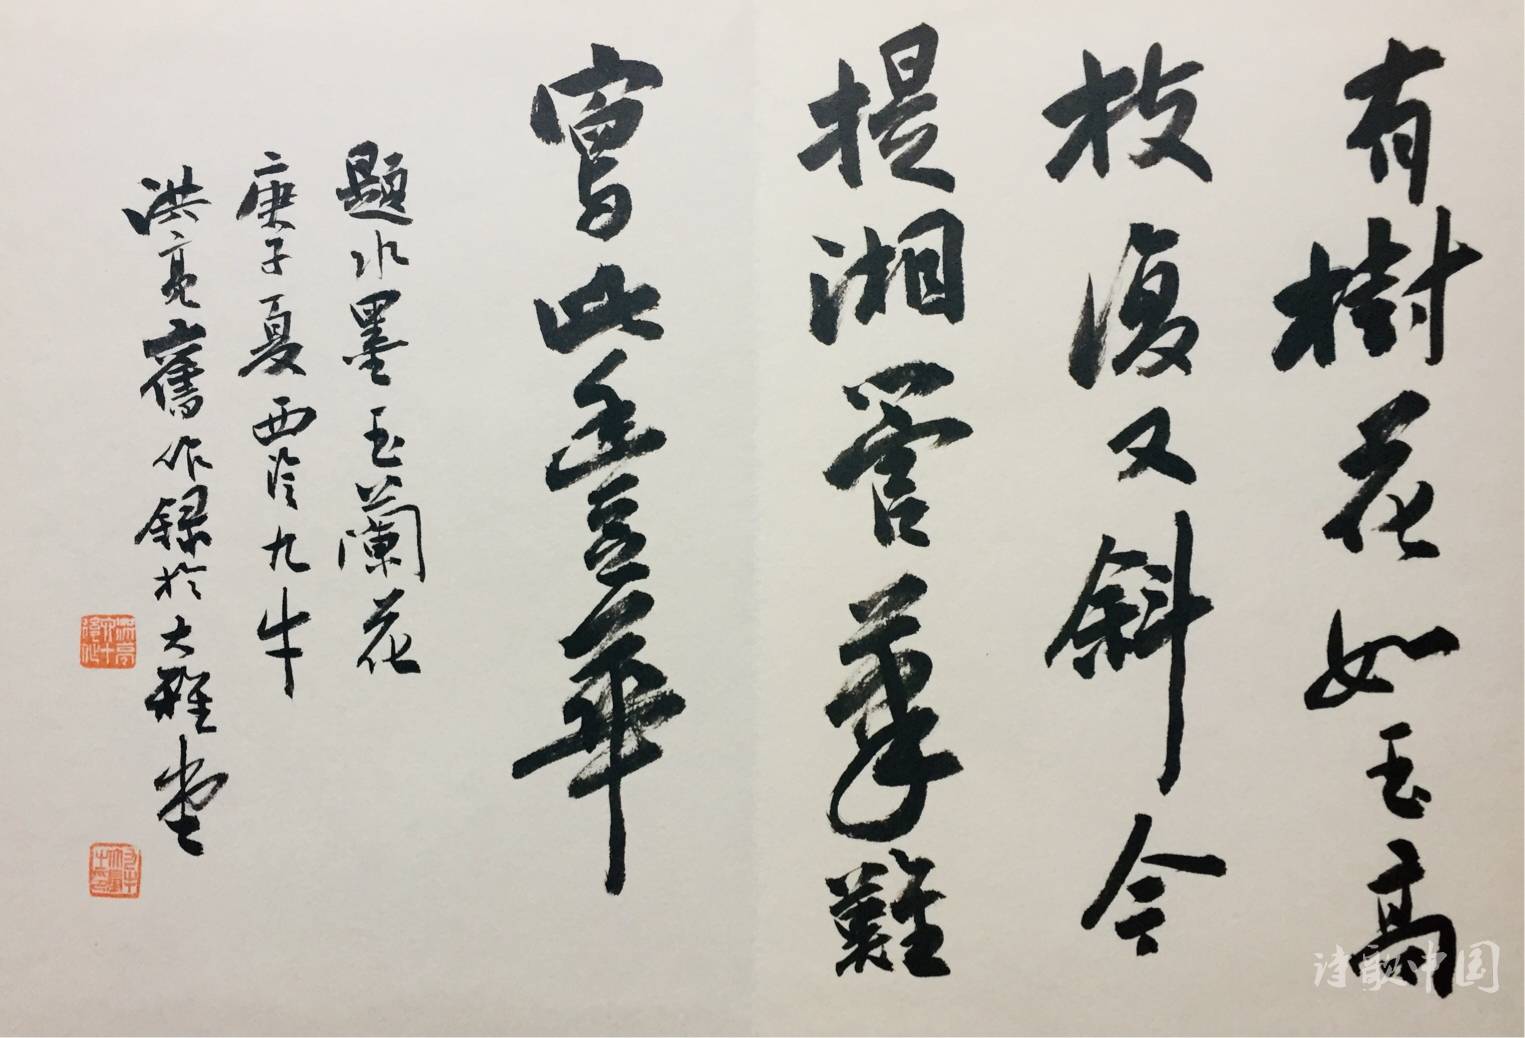 有樹花如玉高
枝復又斜今
提湘管筆難
寫此豐華
題水墨玉蘭花
庚子夏西泠九牛
洪亮舊作錄於大雅堂
诗歌中国